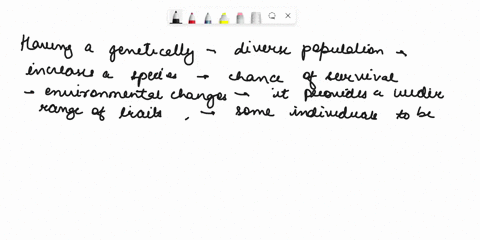 Having a genetically → diverse population →
increase a species → chance of servival
→ environmental changes → it provides a wider
range of traits , → some individuals to be